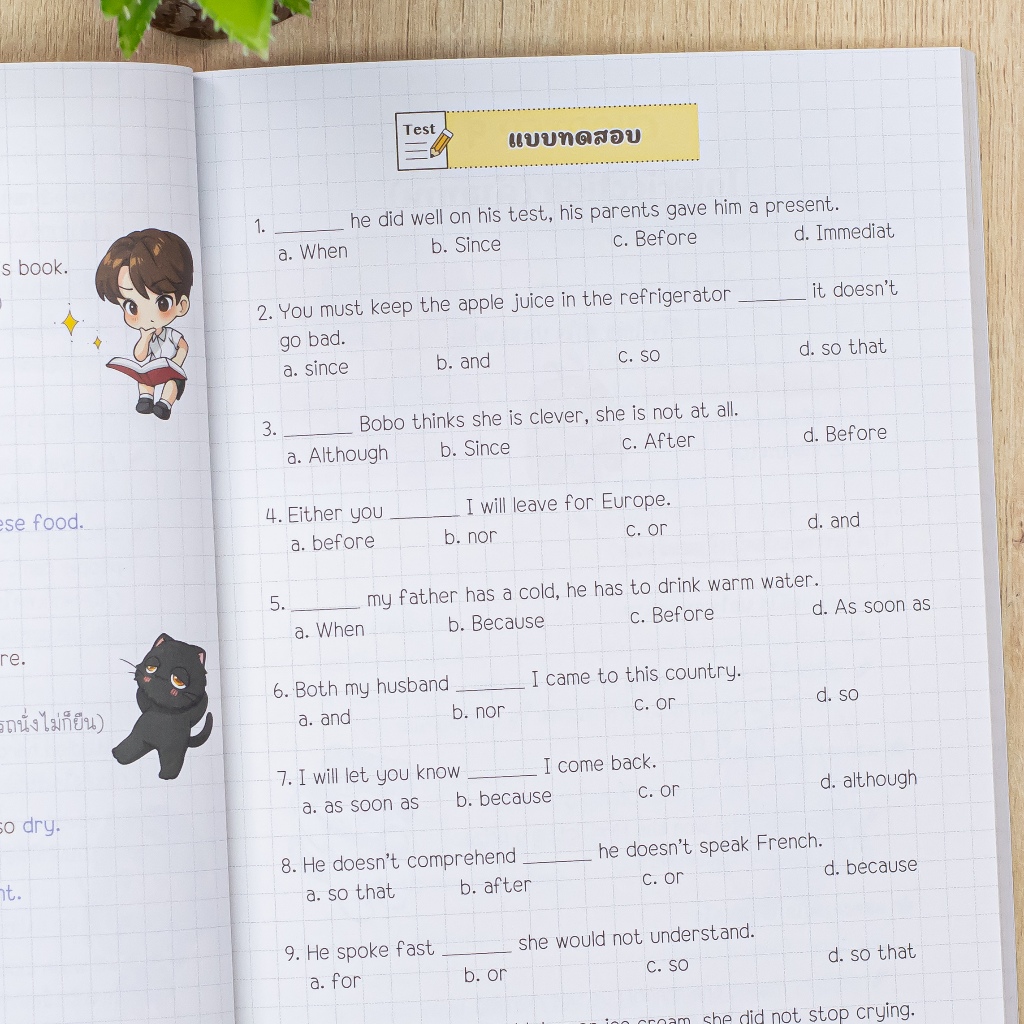 s book.
ese food.
re.
นั่งไม่ก็ยืน)
so dry.
nt.
Test
แบบทดสอบ
1. ______ he did well on his test, his parents gave him a present.
a. When b. Since c. Before d. Immediat
2. You must keep the apple juice in the refrigerator ______ it doesn't
go bad.
a. since b. and c. so d. so that
3. ______ Bobo thinks she is clever, she is not at all.
a. Although b. Since c. After d. Before
4. Either you ______ I will leave for Europe.
a. before b. nor c. or d. and
5. ______ my father has a cold, he has to drink warm water.
a. When b. Because c. Before d. As soon as
6. Both my husband ______ I came to this country.
a. and b. nor c. or d. so
7. I will let you know ______ I come back.
a. as soon as b. because c. or d. although
8. He doesn't comprehend ______ he doesn't speak French.
a. so that b. after c. or d. because
9. He spoke fast ______ she would not understand.
a. for b. or c. so d. so that
ice cream, she did not stop crying.